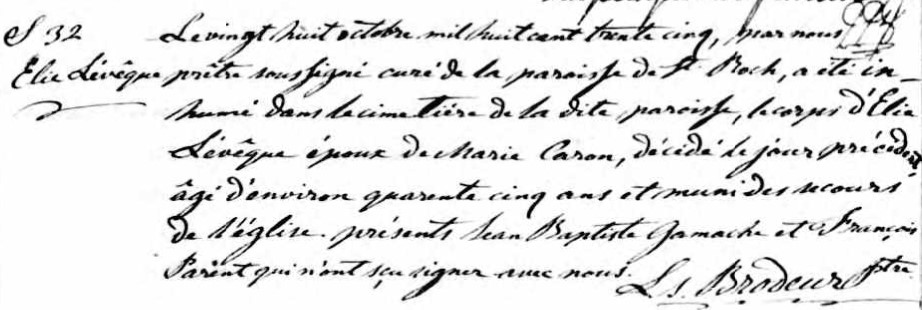 S 32 Le vingt huit octobre mil huit cent trente cinq, par nous
Elie Lévêque prêtre soussigné curé de la paroisse de St Roch, a été in-
humé dans le cimetière de la dite paroisse, le corps d'Elie
Lévêque époux de Marie Caron, décédé le jour précédent
âgé d'environ quarente cinq ans et muni des secours
de l'église. présents Jean Baptiste Gamache et François
Parent qui n'ont sçu signer avec nous.
Ls. Brodeur Ptre